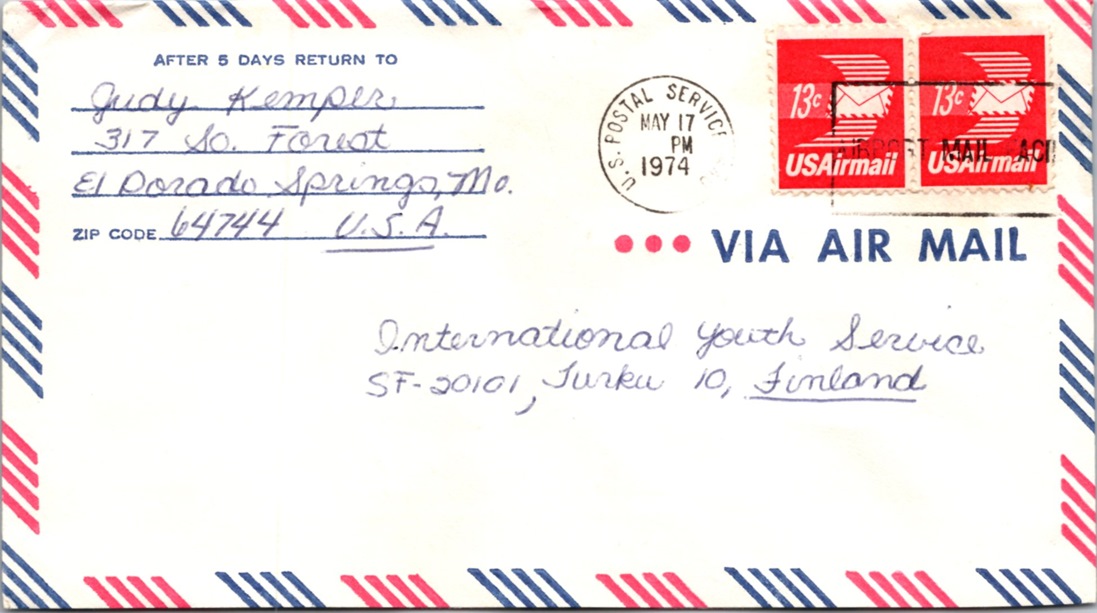 AFTER 5 DAYS RETURN TO
Judy Kemper
317 So. Forest
El Dorado Springs, Mo.
ZIP CODE 64744 U.S.A.
U.S. POSTAL SERVICE
MAY 17
PM
1974
13c
USAirmail
13c
USAirmail
AIRPORT MAIL
VIA AIR MAIL
International Youth Service
SF-20101, Turku 10, Finland